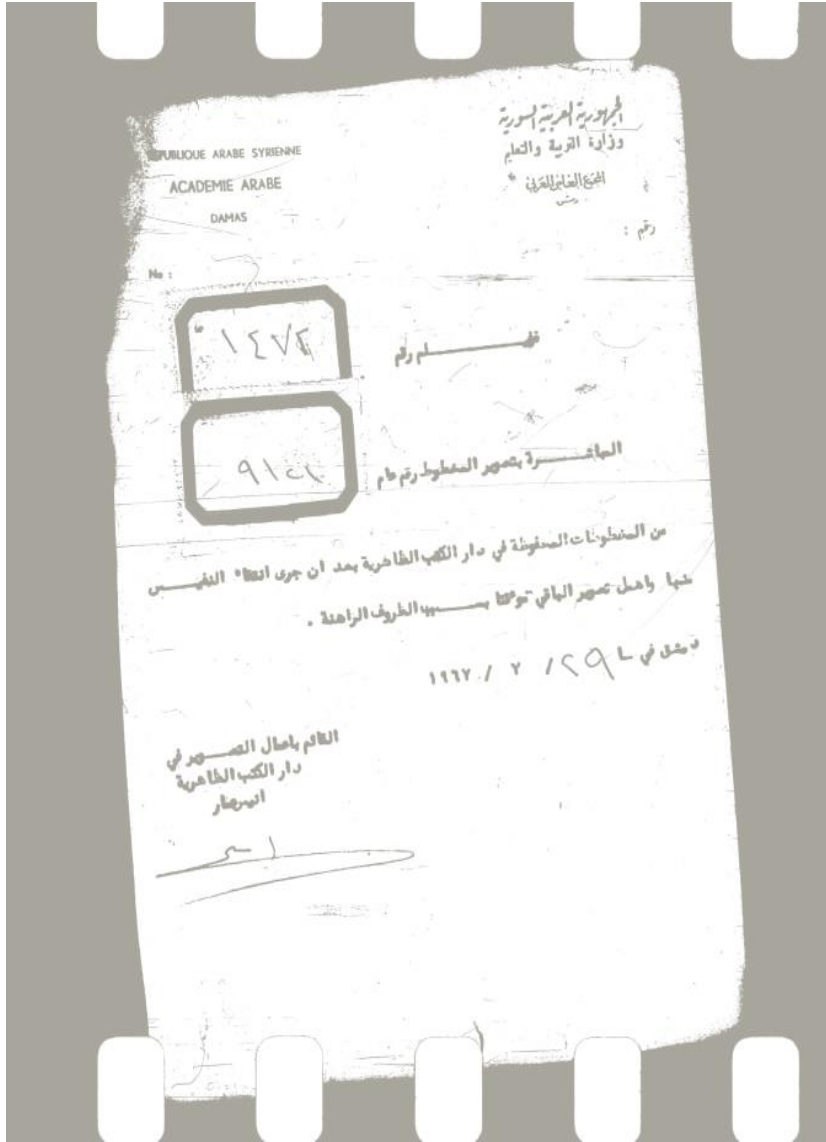 الجمهورية العربية السورية
وزارة التربية والتعليم
المجمع العلمي العربي
دمشق
رقم :
REPUBLIQUE ARABE SYRIENNE
ACADEMIE ARABE
DAMAS
No :
فيلم رقم
المباشرة بتصوير المخطوط رقم عام
من المخطوطات المحفوظة في دار الكتب الظاهرية بعد ان جرى انتقاء النفيس
منها واهمل تصوير الباقي موقتا بسبب الظروف الراهنة .
دمشق في ٢٩ / ٢ / ١٩٦٧
القائم باعمال التصوير في
دار الكتب الظاهرية